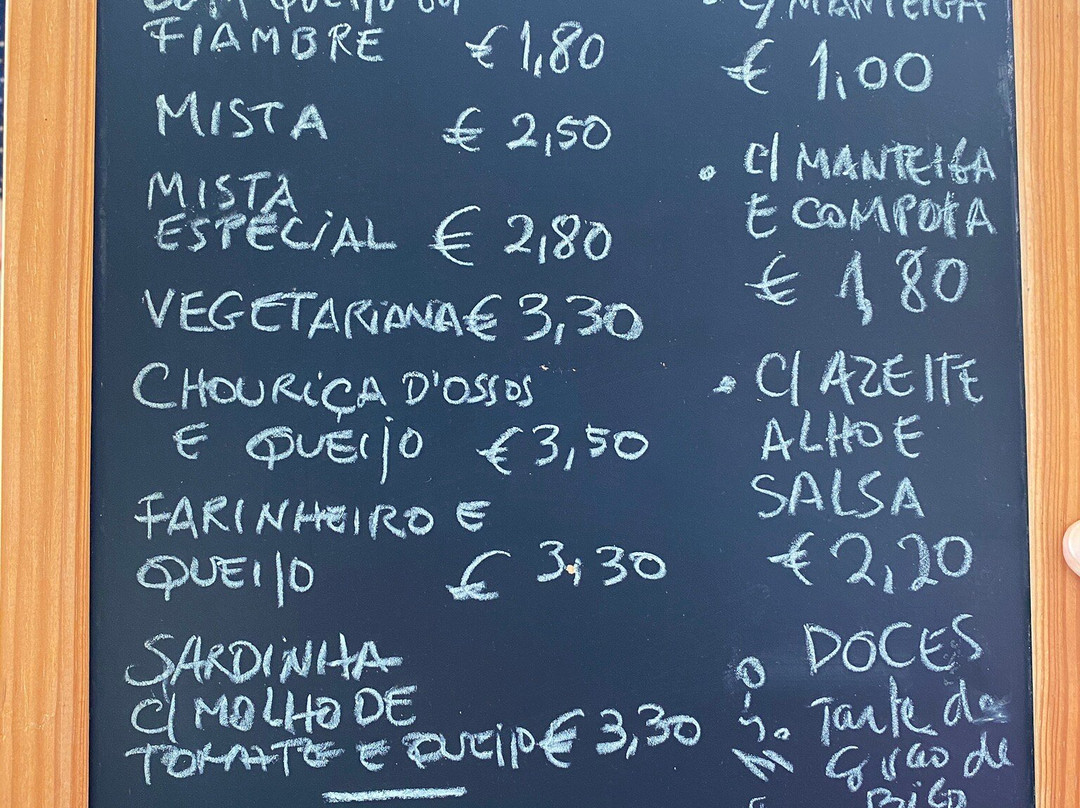 COM QUEIJO OU
FIAMBRE € 1,80
MISTA € 2,50
MISTA
ESPECIAL € 2,80
VEGETARIANA € 3,30
CHOURIÇA D'OSSOS
E QUEIJO € 3,50
FARINHEIRO E
QUEIJO € 3,30
SARDINHA
C/ MOLHO DE
TOMATE E QUEIJO € 3,30
• C/ MANTEIGA
€ 1,00
• C/ MANTEIGA
E COMPOTA
€ 1,80
• C/ AZEITE
ALHO E
SALSA
€ 2,20
DOCES
Tarte de
Grão de
Bico